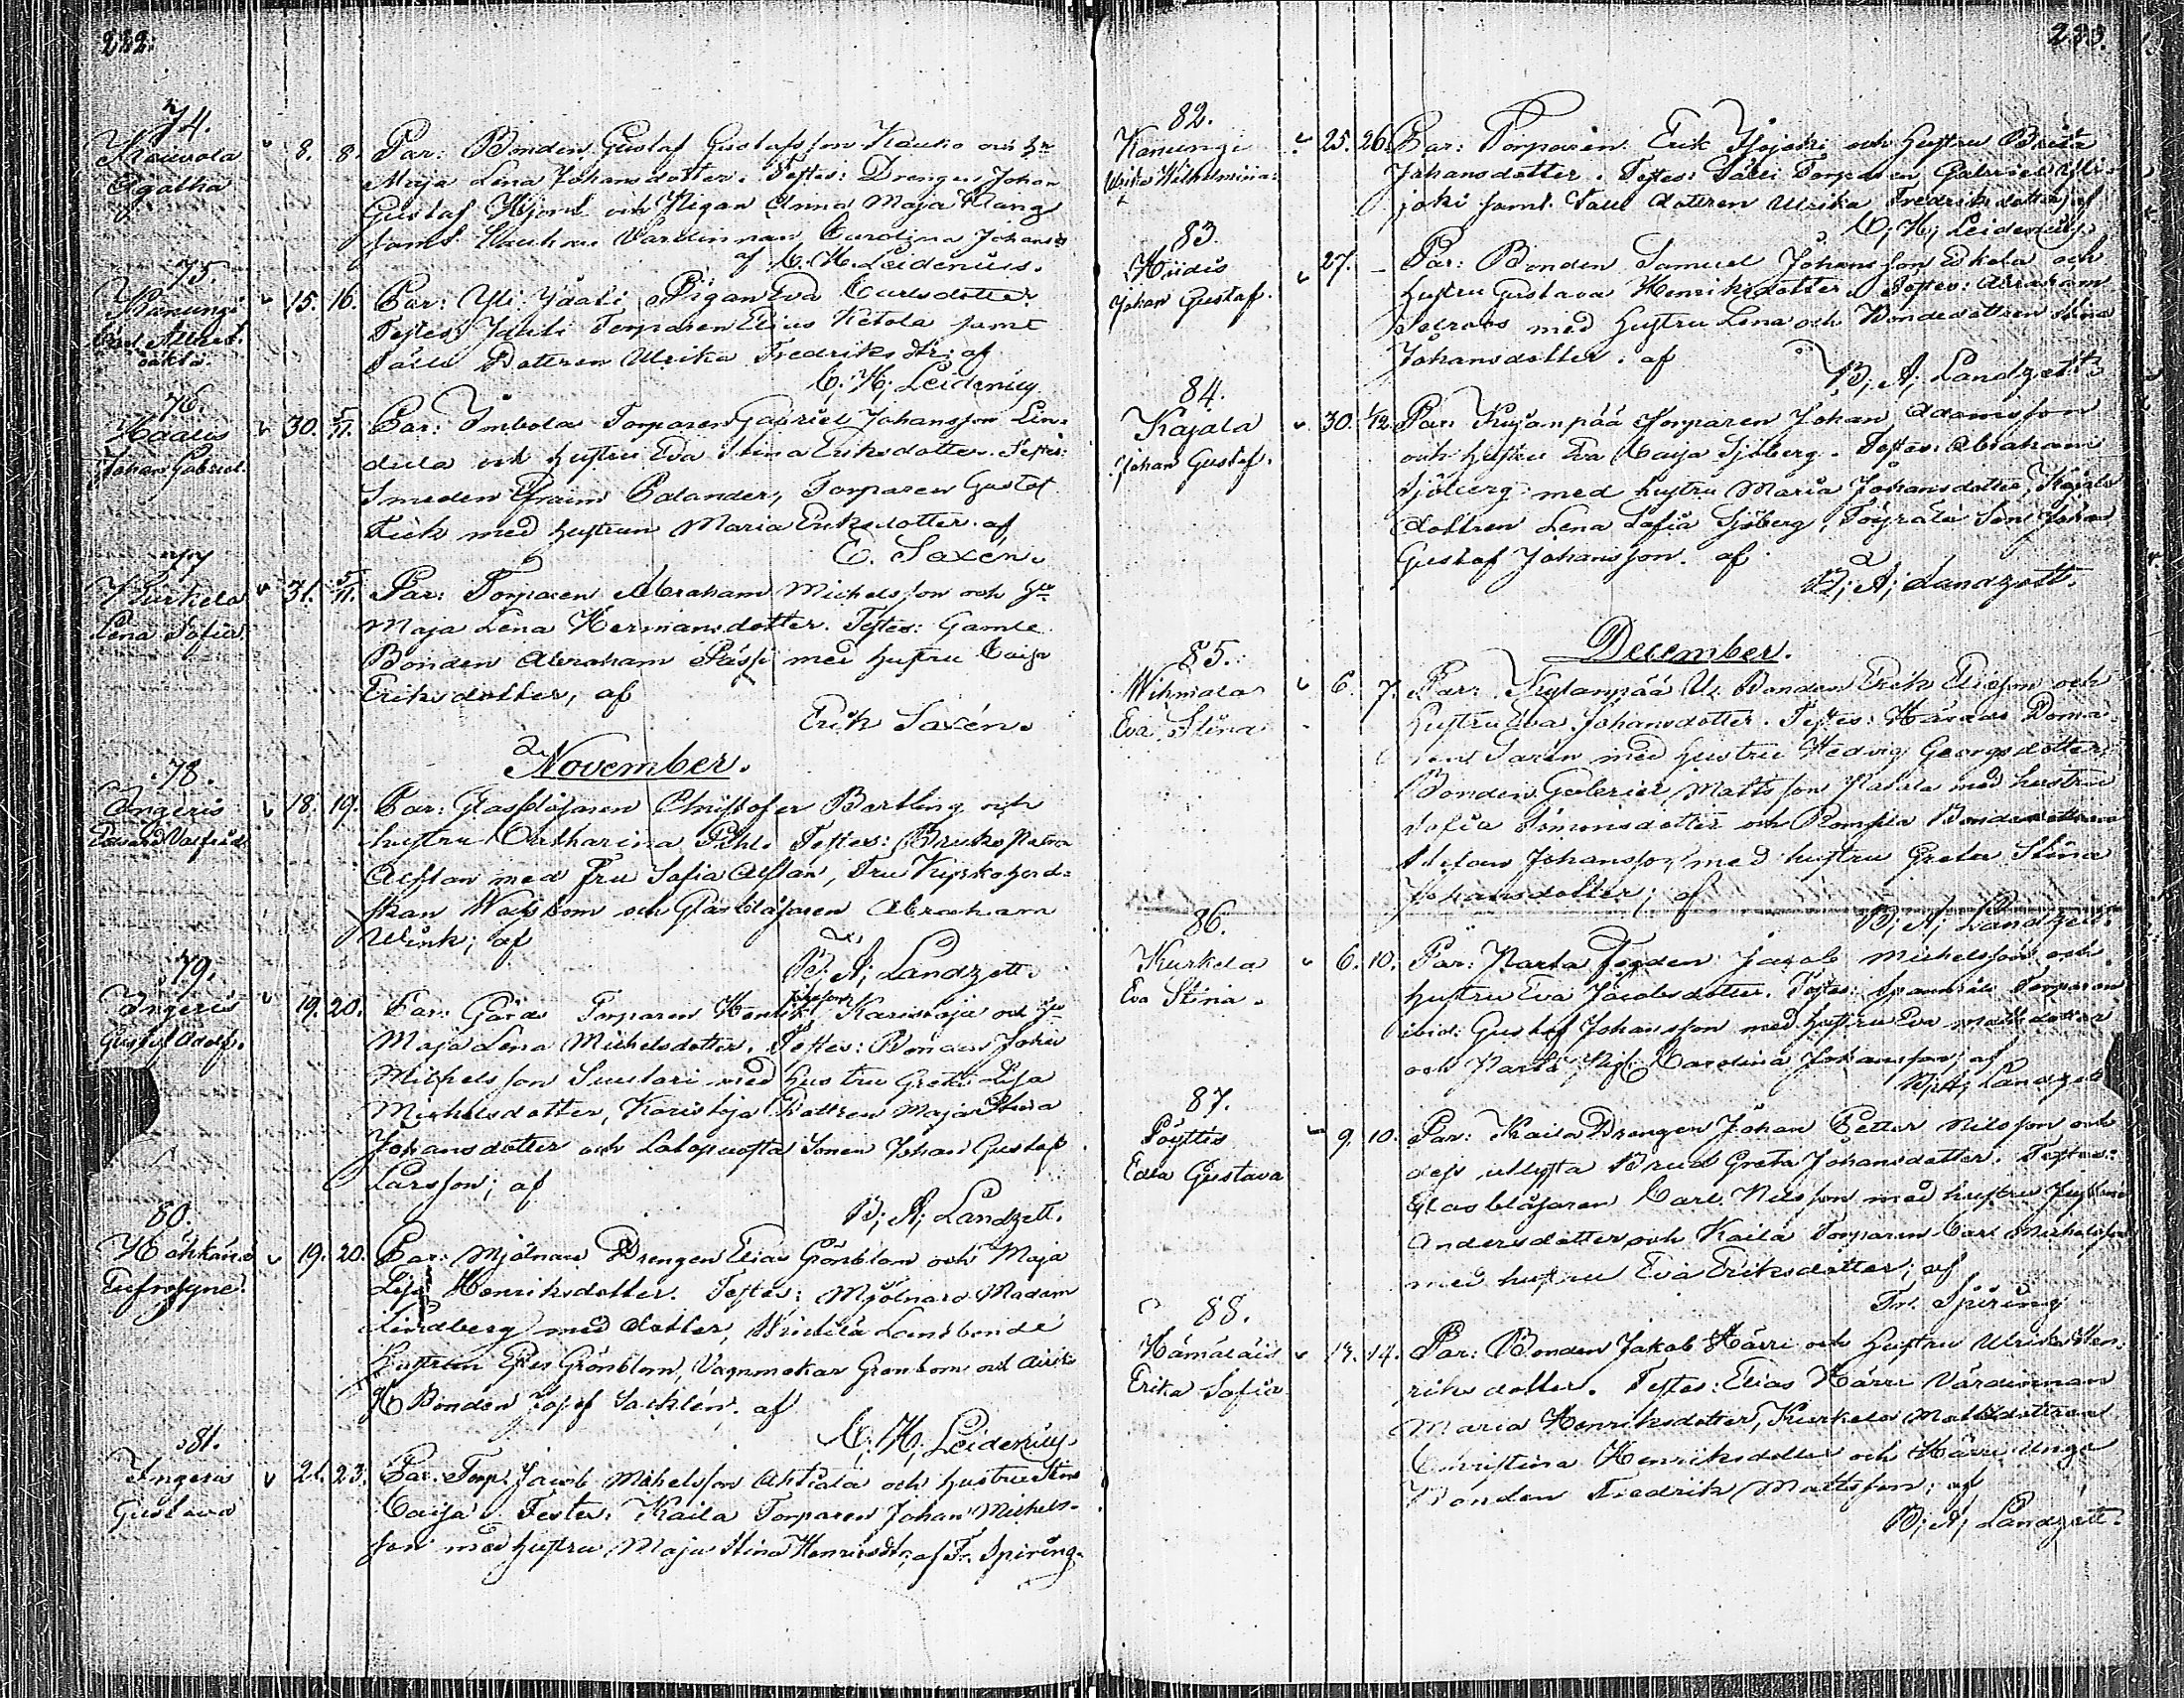 222.
74.
Kouvola
Agatha
8. 8. Par: Bonden Gustaf Gustafsson Kauko och hu
Maja Lena Johansdotter. Testes: Drengen Johan
Gustaf Hjord och Pigan Anna Maja Klang
samt Värdinnan Carolina Johans
af C. H. Leidenius.
75.
Kanungi
Carl Albert
oäkta.
15. 16. Par: Yli Jaali Pigan Eva Carlsdotter.
Testes: Jaali Torparen Elias Ketola samt
Dottren Ulrika Fredriks dtr; af
C; H; Leidenius
76.
Haalis
Johan Gabriel.
30. 5/11. Par: Torparen Gabriel Johansson Lin-
dula och hustru Eva Stina Eriksdotter. Testes:
Smeden Efraim Palander, Torparen Gustaf
med hustrun Maria Eriksdotter. af
E. Saxén.
77
Kurkela
Lena Sofia.
31. 5/11. Par: Torparen Abraham Michelsson och hu
Maja Lena Hermansdotter. Testes: Gamle
Bonden Abraham med hustru Caisa
Eriksdotter, af
Erik Saxén.
November.
78.
Ingeris
Edvard Valfrid
18. 19. Par: Glasblåsaren Christofer Bartling och
hustru Catharina Pihl. Testes: Bruks Patron
med Fru Sofia
och Glasblåsaren Abraham
Wink; af
B; A; Landzett.
79.
Ingeris
Gustaf Adolf.
19. 20. Par: Torparen Henrik Karisoja och hu
Maja Lena Michelsdotter. Testes: Bonden Johan
Michelsson Suutari med hustru Greta Lisa
Michelsdotter, Karisoja Dottren Maja Stina
Johansdotter och Sonen Johan Gustaf
Larsson; af
B; A; Landzett.
80.
Eufrosyne.
19. 20. Par: Mjölnare Drengen Elias Grönblom och Maja
Lisa Henriksdotter. Testes: Mjölnare Madam
Lindberg med dotter, Landbonde
Hustrun Grönblom, Vagnmakar Grönblom och
Bonden Josef Sachlén. af
C; H; Leidenius
81.
Ingeris
Gustava
21. 23. Par. Torp. Jacob Michelsson Ahtiala och hustru Stina
Caisa. Testes: Kaila Torparen Johan Michels-
son med hustru Maja Stina Henricsdtr; af Fr. Spiring.
223.
82.
Kanungi
Ulrika Wilhelmina
25. 26. Par: Torparen Erik Isojoki och hustru Brita
Johansdotter. Testes: Torparen Gabriel Yli-
joki samt dottren Ulrika Fredriksdotter; af
C; H; Leidenius
83.
Hiidis
Johan Gustaf.
27. – Par: Bonden Samuel Johansson och
hustru Gustava Henriksdotter. Testes: Abraham
med hustru Lena och Bondedottren Stina
Johansdotter. af
B; A; Landzett.
84.
Kajala
Johan Gustaf.
30. 1/12. Par: Kujanpää Torparen Johan Adamsson
och hustru Eva Caisa Sjöberg. Testes: Abraham
Sjöberg med hustru Maria Johansdotter, Kajala
dottren Lena Sofia Sjöberg, Son Johan
Gustaf Johansson. af
B; A; Landzett.
December.
85.
Wihmala
Eva Stina
6. 7. Par: Bonden Erik Ericsson och
hustru Eva Johansdotter. Testes: Härads Doma-
ren Saren med hustru Hedvig Georgsdotter,
Bonden Gabriel Mattsson med hustru
Sofia Simonsdotter och Bonde
Stefan Johansson med hustru Greta Stina
Johansdotter; af
B; A; Landzett.
86.
Kurkela
Eva Stina.
6. 10. Par: Fogden Jacob Michelsson och
hustru Eva Jacobsdotter. Testes: Torparen
ibid: Gustaf Johansson med hustru Eva Mattsdotter
och Carolina Johansson; af
B; A; Landzett
87.
Pöyttis
Edla Gustava
9. 10. Par: Kaila Drengen Johan Petter Nilsson och
dess utlysta Brud Greta Johansdotter. Testes:
Glasblåsaren Carl Nilsson med hustru Justina
Andersdotter, och Kaila Torparen Carl Michelsson
med hustru Eva Eriksdotter; af
Fr. Spiring.
88.
Hämäläis
Erika Sofia
13. 14. Par: Bonden Jakob Härri och hustru Ulrika Hen-
riksdotter. Testes: Elias Härri Värdinnan
Maria Henriksdotter, Kurkela
Christina Henriksdotter och Härri unge
Bonden Fredrik Mattsson; af
B; A; Landzett.